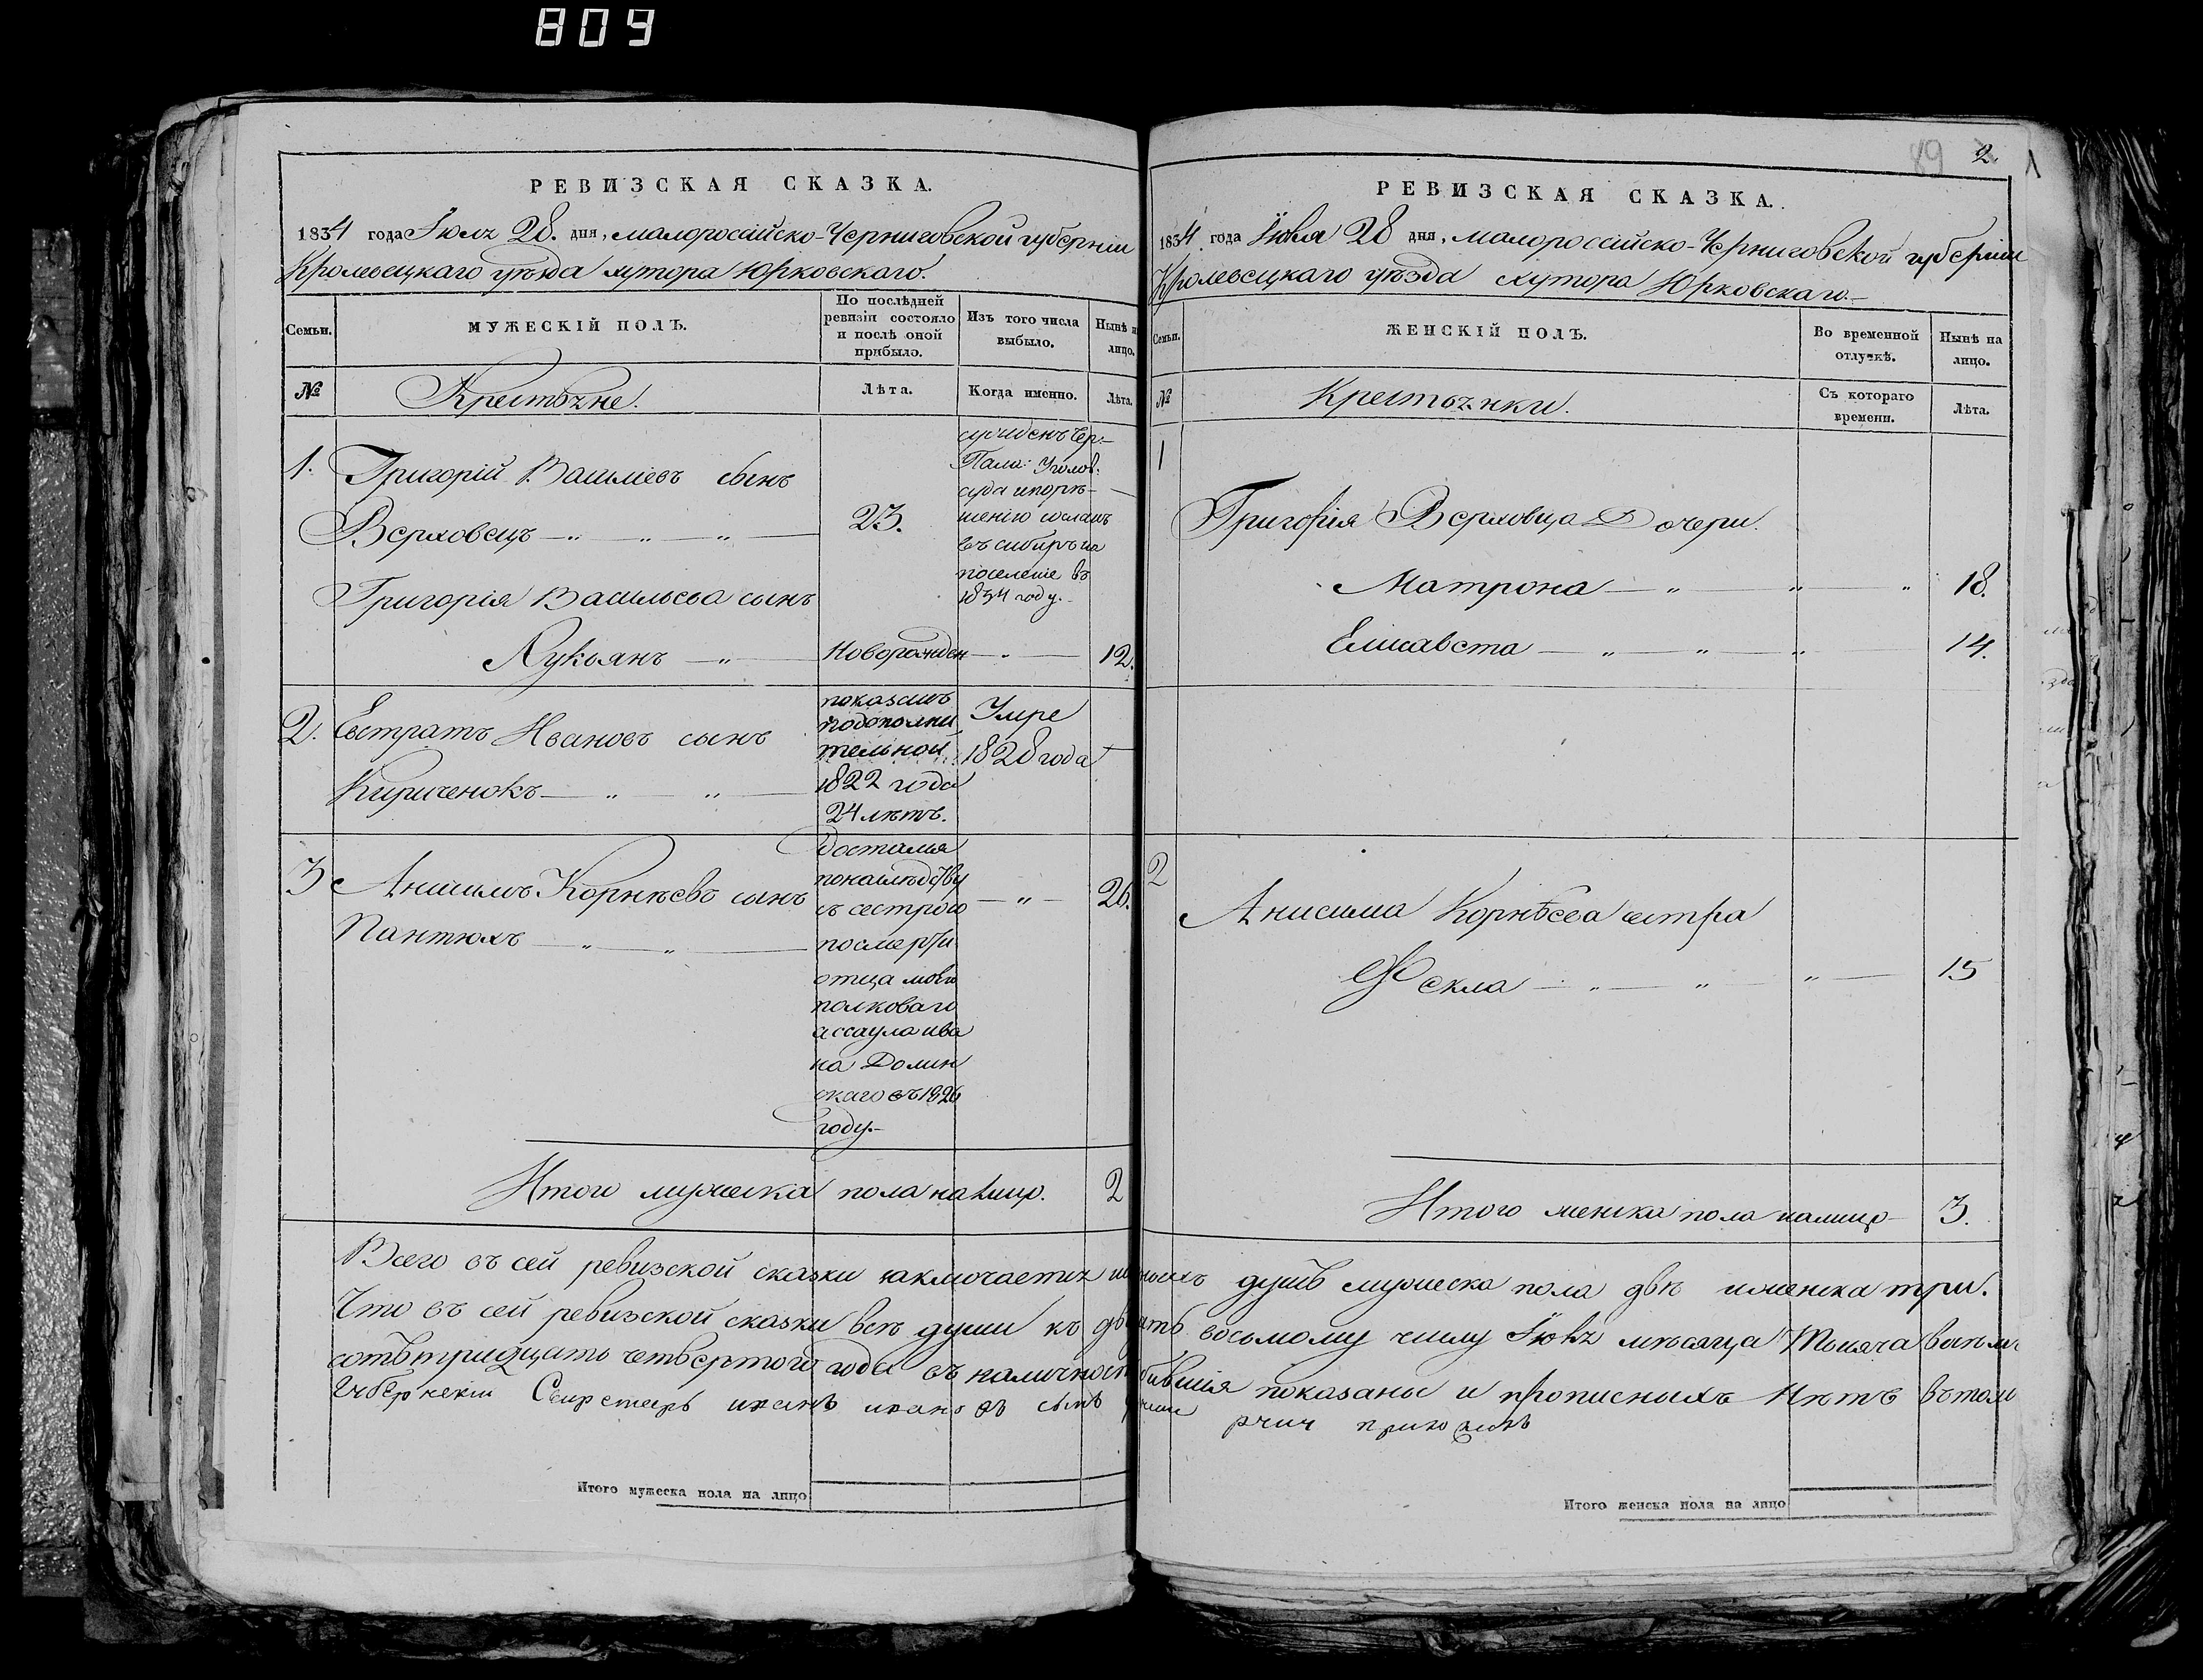 809
РЕВИЗСКАЯ СКАЗКА.
1834 года Июля 28. дня, малоросійско-Черниговской губерніи
Кролевецкаго уѣзда хутора Юрковскаго.
Семьи.
МУЖЕСКІЙ ПОЛЪ.
По послѣдней
ревизіи состояло
и послѣ оной
прибыло.
Изъ того числа
выбыло.
Нынѣ н
лицо.
№
Крестьяне.
Лѣта.
Когда именно.
Лѣта.
1. Григорій Васильевъ сынъ
Верховецъ
23.
Пала: Уголов:
суда
сосланъ
въ сибирь на
поселеніе въ
1834 году.
Григорія Васильева сынъ
Лукьянъ
Новорожден
12.
2. Евстратъ Ивановъ сынъ
Кириченокъ
показанъ
подополни
тельной
1822 года
24 лѣтъ.
Умре
1828 года
3 Анисимъ Корнѣевъ сынъ
Пантюхъ
достался
понаслѣдству
съ сестрою
посмерти
отца моего
полковаго
ассаула ива
на Долин
скаго въ 1826
году.
26.
Итого мужеска пола налицо. 2
89 2.
РЕВИЗСКАЯ СКАЗКА.
1834 года Июля 28 дня, малоросійско-Черниговской губерніи
Кролевецкаго уѣзда хутора Юрковскаго.
Семьи.
ЖЕНСКІЙ ПОЛЪ.
Во временной
отлучкѣ.
Нынѣ на
лицо.
№
Крестьянки.
Съ котораго
времени.
Лѣта.
1
Григорія Верховца Дочери.
Матрона 18.
Елисавета 14.
2
Анисима Корнѣева сестра
Фекла 15
Итого женска пола налицо 3.
Всего въ сей ревизской сказки заключается душъ мужеска пола двѣ иженска три.
Что въ сей ревизской сказки всѣ души къ двѣ восьмому числу Июля мѣсяца Тысяча
сотъ тридцать четвертого года въ наличности бывшія показаны и прописныхъ Нѣтъ втом
Итого мужеска пола на лицо
Итого женска пола на лицо